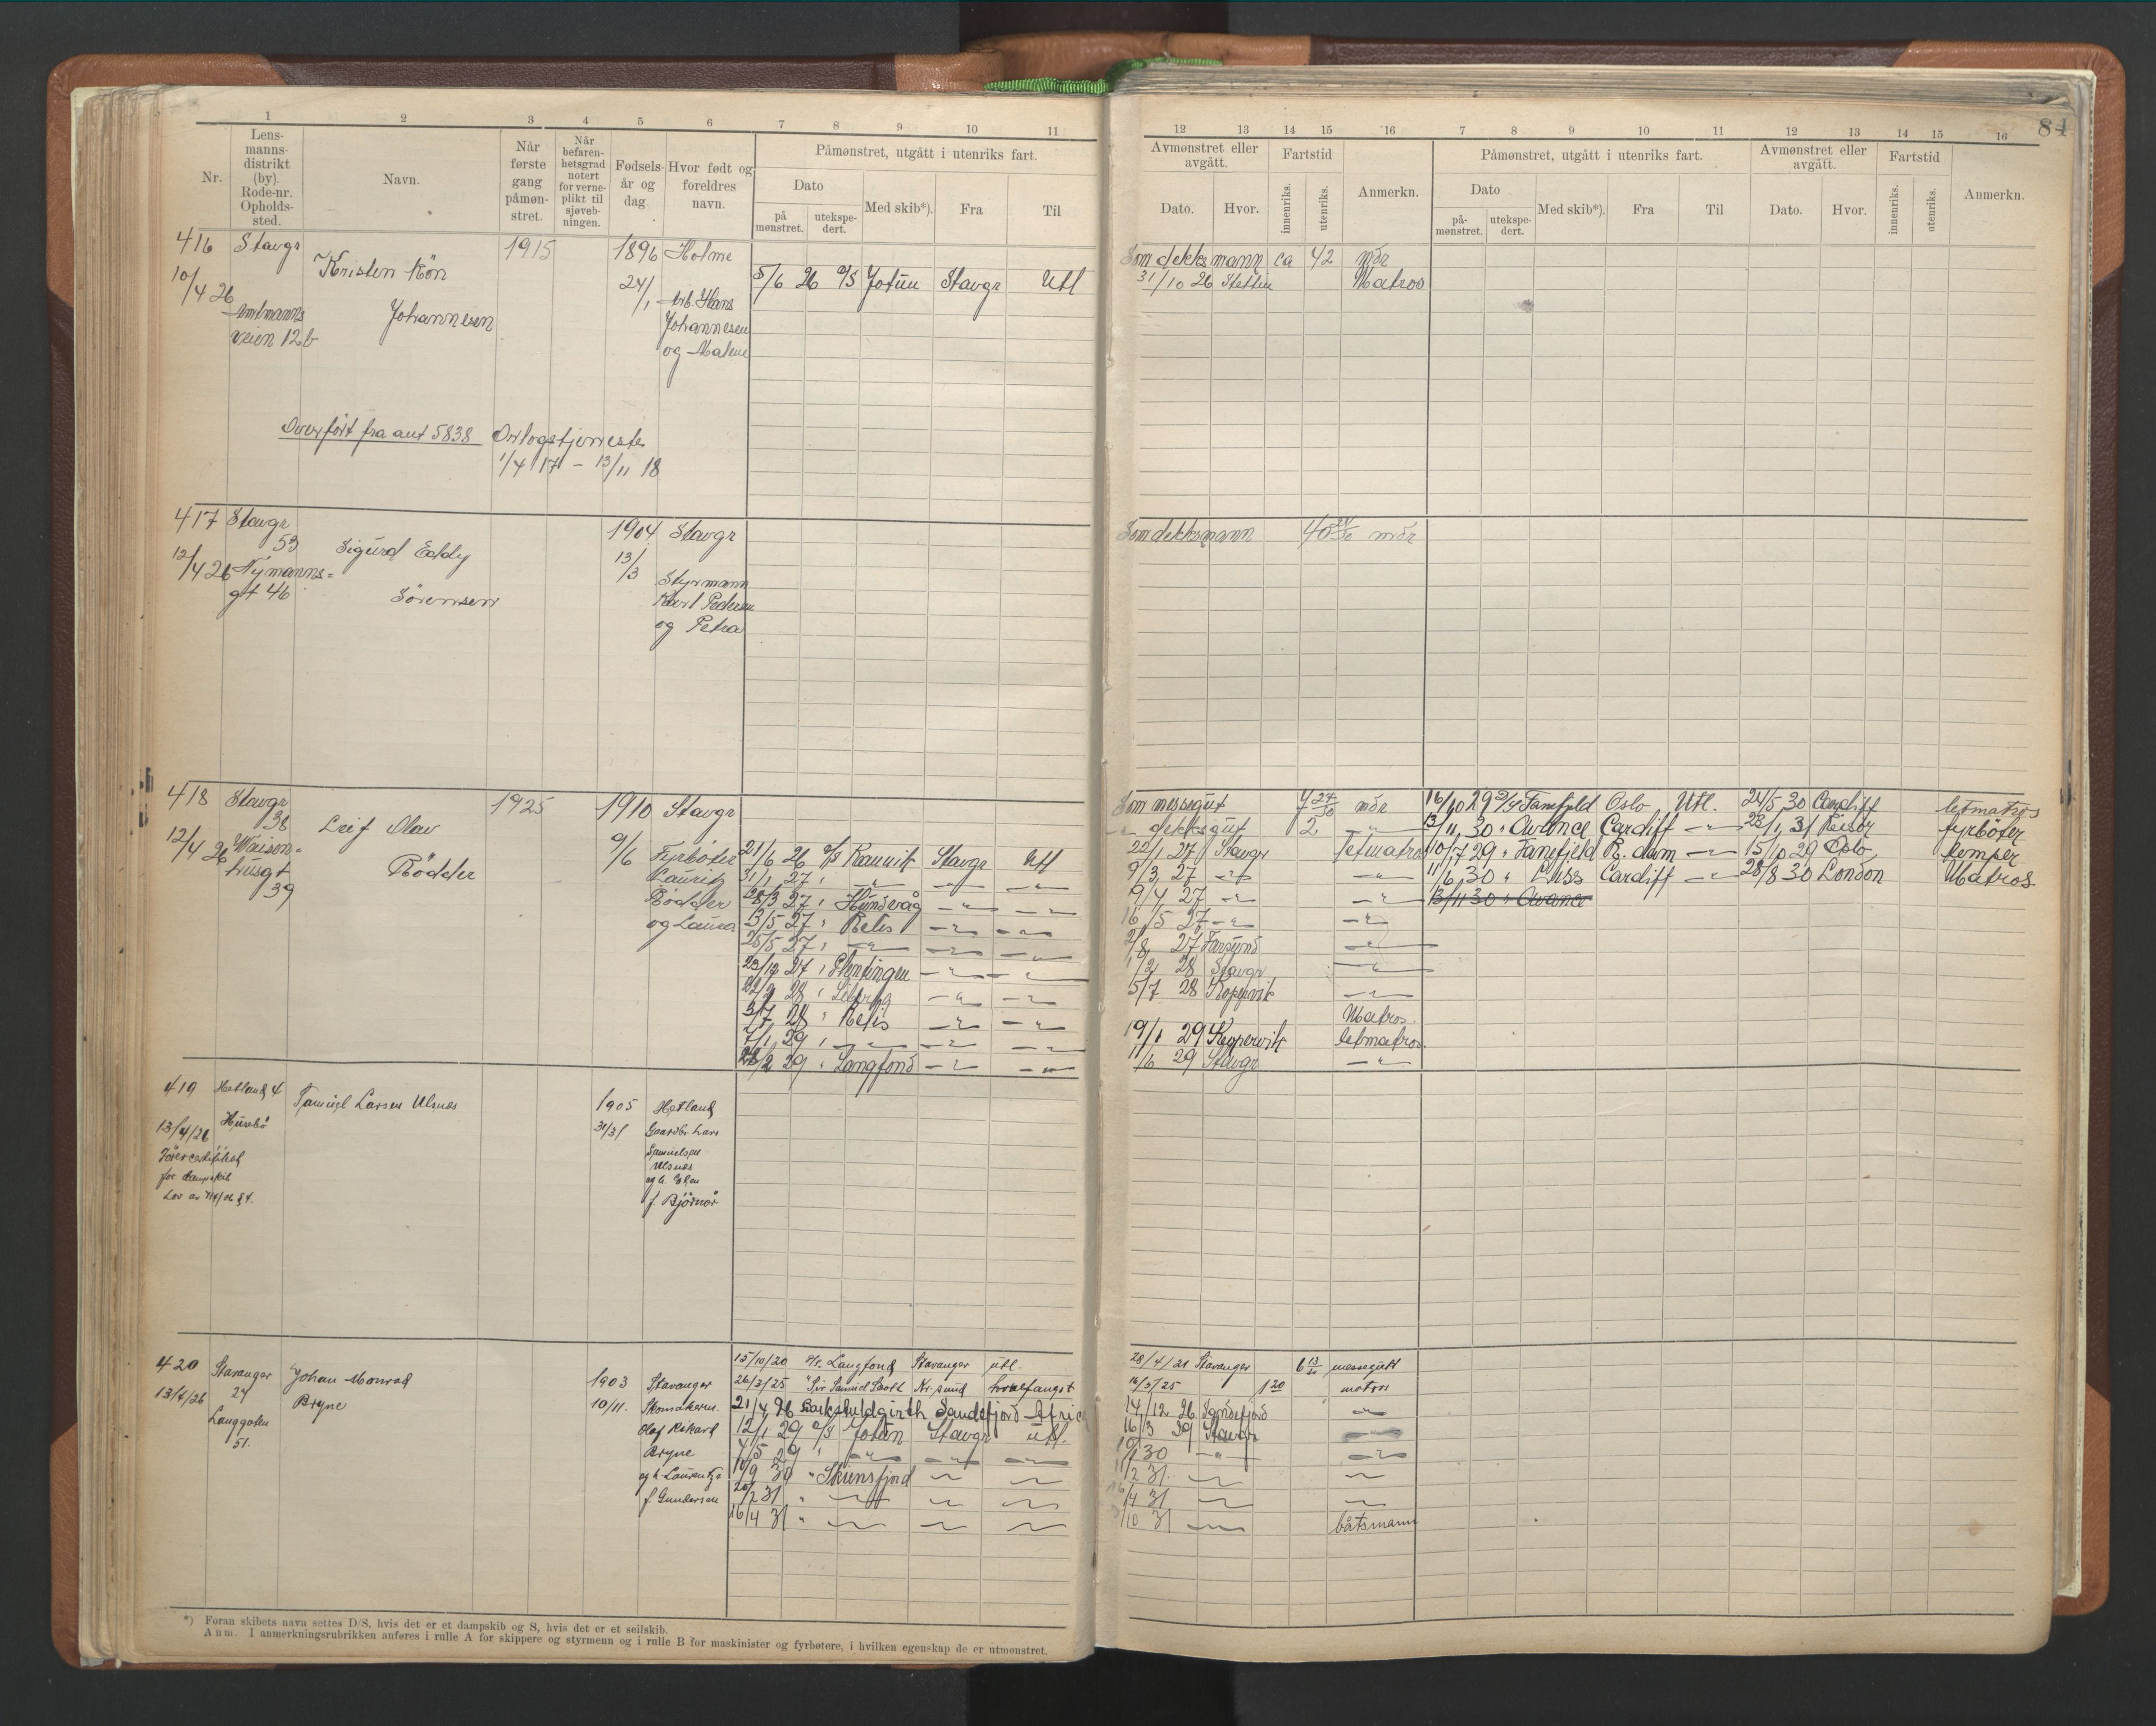 84
1 2 3 4 5 6 7 8 9 10 11
Nr.
Lens-
manns-
distrikt
(by).
Rode-nr.
Opholds-
sted.
Navn.
Når
første
gang
påmøn-
stret.
Når
befaren-
hetsgrad
notert
for verne-
plikt til
sjøveb-
ningen.
Fødsels-
år og
dag
Hvor født og
foreldres
navn.
Påmønstret, utgått i utenriks fart.
Dato
på
mønstret.
utekspe-
dert.
Med skib*).
Fra
Til
12 13 14 15 16 7 8 9 10 11 12 13 14 15 16
Avmønstret eller
avgått.
Dato.
Hvor.
Fartstid
innenriks.
utenriks.
Anmerkn.
Påmønstret, utgått i utenriks fart.
Dato
på-
mønstret.
utekspe-
dert.
Med skib*).
Fra
Til
Avmønstret eller
avgått.
Dato.
Hvor.
Fartstid
innenriks.
utenriks.
Anmerkn.
416 Stavgr
10/4 26
Amtmanns
veien 12b
Kristen Kön
Johannesen
1915
1896
24/1
Holme
arb. Hans
Johannesen
og Malene
5/6 26 D/S Jotun Stavgr Utl
Som dekksmann ca 42 mdr
31/10 26 Stettin Matros
Overført fra ant 5838 Orlogstjeneste
1/4 17 – 13/11 18
417 Stavgr
53
12/4 26 Nymanns=
gt 46
Sigurd Eddy
Sörensen
1904
13/3
Stavgr
Styrmann
Karl Pedersen
og Petra
Som dekksmann 40 24/30 mdr
418 Stavgr
38
12/4 26 Waisen=
husgt
39
Leif Olav
Rödder
1925
1910
9/6
Stavgr
Fyrböter
Lauritz
Rödder
og Laura
21/6 26 D/S Ravnvik Stavgr Utl
31/1 27 " — " — — " — — " —
28/3 27 " Hundvåg — " — — " —
13/5 27 " Relis — " — — " —
25/5 27 " — " — — " — — " —
23/12 27 " Slentingen — " — — " —
28 " — " — — " —
3/7 28 " Relis — " — — " —
7/1 29 " — " — — " — — " —
28/2 29 " Langfond — " — — " —
Som messegut 7 24/30 mdr
— " — dekksgut 2 — " —
22/1 27 Stavgr Letmatros
9/3 27 — " — — " —
9/4 27 — " — — " —
16/5 27 — " — — " —
2/8 27 Farsund — " —
1/2 28 Stavgr — " —
5/7 28 Kopervik — " —
Matros.
19/1 29 Kopervik letmatros.
11/6 29 Stavgr — " —
16/10 29 D/S Fanefjeld Oslo Utl. 24/5 30 Cardiff letmatros
13/11 30 " Avance Cardiff — " — 28/1 31 Risör fyrböter
10/7 29 " Fanefjeld R.dam — " — 15/10 29 Oslo lemper
11/6 30 " Cardiff — " — 28/8 30 London Matros.
13/11 30 " Avance
419 Hetland 4
13/4/26 Husebö
Förercertifikat
for dampskib
Samuel Larsen Ulsnes
1905
31/31
Hetland
Gaardbr. Lars
Samuelsen
Ulsnes
og h. Elen
f. Björnö
420 Stavanger
13/4/26 24
Langgaten
51.
Johan Monrad
Bryne
1903
10/11.
Stavanger
Skomakerm.
Olaf Rikard
Bryne
og h. Laurentze
f. Gundersen
15/10/20 D/s. Langfond Stavanger utl.
26/3/25 " Sir Samuel Scott Kr.sund hvalfangst
21/4 26 Bark Skuldgirth Sandefjord Africa
12/1 29 D/S Jotun Stavgr Utl.
4/5 29 " — " — — " — — " —
10/9 30 " Skiensfjord — —
20/2 31 " — — —
16/4 31 " — — —
28/4/21 Stavanger 6 13/30 messegutt
16/5/25 1 20 matros
14/12 26 Sandefjord — " —
16/3 29 Stavgr — " —
30 — " — — " —
11/2 31 — —
4 31 — —
/10 31 — båtsmann
*) Foran skibets navn settes D/S, hvis det er et dampskib og S, hvis det er et seilskib.
Anm. I anmerkningsrubrikken anføres i rulle A for skippere og styrmenn og i rulle B for maskinister og fyrbøtere, i hvilken egenskap de er utmønstret.